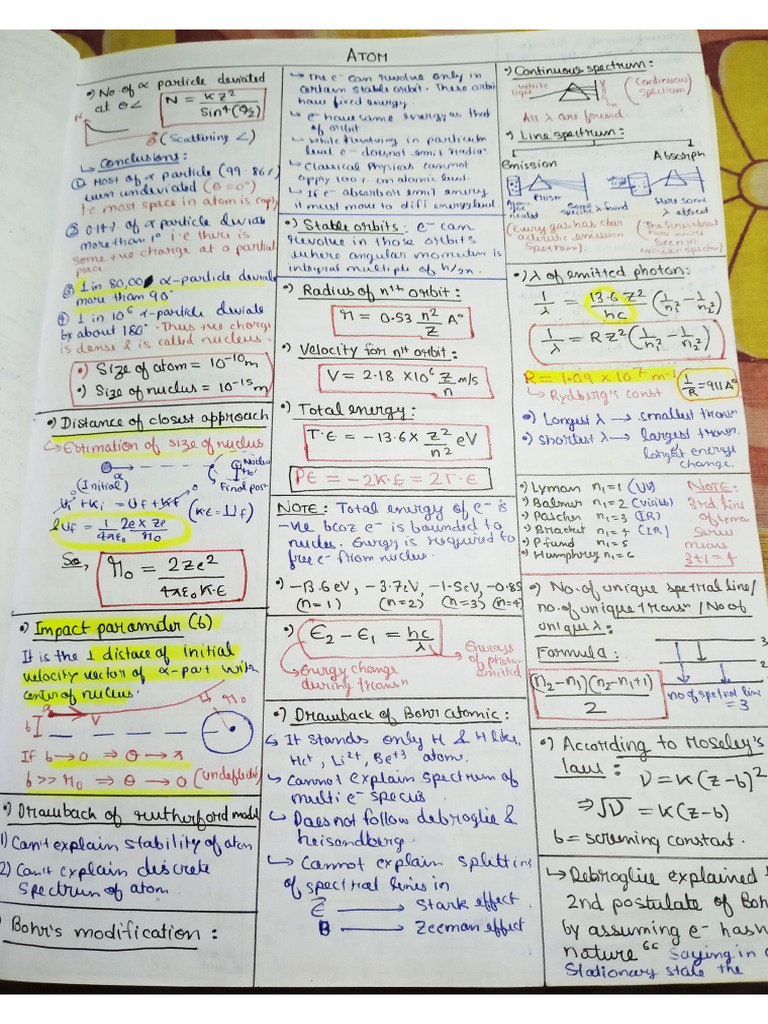 ATOM
•) No. of α particle deviated
at θ∠
N = KZ²/sin⁴(θ/2)
N
θ (Scattering ∠)
↳ Conclusions:
① Most of α particle (99.86%)
went undeviated (θ=0°)
i.e most space in atom is empty
② 0.14% of α particle deviate
more than 1° i.e there is
some +ve charge at a partial
place
③ 1 in 80,00 α-particle deviate
more than 90°
④ 1 in 10⁶ α-particle deviate
by about 180° Thus +ve charge
is dense & is called nucleus.
•) Size of atom = 10⁻¹⁰m
•) Size of nuclus = 10⁻¹⁵m
•) Distance of closest approach
↳ Estimation of size of nuclus
α
(Initial)
Nuclus
r₀
Final post
Ui + Ki = Uf + Kf (KE = ↓Uf)
Uf = 1/4πε₀ 2e × Ze/r₀
So, r₀ = 2Ze²/4πε₀K.E
•) Impact paramder (b)
It is the ⊥ distace of initial
velocity vector of α-part with
center of nucleus.
b
V
r₀
If b→0 ⇒ θ→π
b>>r₀ ⇒ θ→0 (undeflected)
•) Drawback of rutherford model
1) Can't explain stability of atom
2) Can't explain discrete
spectrum of atom.
) Bohr's modification :
↳ The e⁻ can revolve only in
certain stable orbit. These orbit
have fixed energy
↳ e⁻ have same energy as that
of orbit
↳ while revolving in particular
level e⁻ does not emit radia
↳ Classical Physics cannot
apply 100% on atomic level.
↳ If e⁻ absorb or emit energy
it must move to diff energy level.
•) Stable orbits: e⁻ can
revolve in those orbits
where angular momentum is
integral multiple of h/2π.
•) Radius of nth orbit:
r = 0.53 n²/Z A°
•) Velocity for nth orbit:
V = 2.18 × 10⁶ Z/n m/s
•) Total energy:
T.E = −13.6 × Z²/n² eV
PE = −2K.E = 2T.E
NOTE: Total energy of e⁻ is
−ve bcoz e⁻ is bounded to
nucles. Energy is required to
free e⁻ from nuclus.
•) −13.6eV, −3.4eV, −1.5eV, −0.85
(n=1) (n=2) (n=3) (n=4)
•) E₂ − E₁ = hc/λ
↳ Energy change
during transn
→ Energy
of photon
emitted
•) Drawback of Bohr atomic:
↳ It stands only H & H like,
He⁺, Li²⁺, Be⁺³ atom.
↳ Cannot explain spectrum of
multi e⁻ specis.
↳ Does not follow debroglie &
heisondberg.
↳ Cannot explain splitting
of spectral lines in
E⃗ → Stark effect
B⃗ → Zeeman effect
•) Continuous spectrum:
white
light
(Continuous
Spectrum)
All λ are found.
•) Line spectrum:
Emission
Absorph
Prism
Some
specific λ found
Here some
λ absent
(Every gas has char
acteristic emission
Spectrum).
Seen in
emission spectra)
•) λ of emitted photon:
1/λ = 13.6Z²/hc (1/n₁² − 1/n₂²)
1/λ = RZ² (1/n₁² − 1/n₂²)
R = 1.09 × 10⁷ m⁻¹
1/R = 911A°
↳ Rydberg's const
•) Longest λ → smallest transn
•) Shortest λ → largest transn
longest energy
change.
•) Lyman n₁=1 (UV)
•) Balmer n₁=2 (visible)
•) Paschen n₁=3 (IR)
•) Bracket n₁=4 (IR)
•) Pfund n₁=5
•) Humphrey n₁=6
NOTE:
3rd line
of lyman
Series
means
3+1=4
•) No. of unique spectral line/
no. of unique transn/No of
unique λ:
Formula:
(n₂−n₁)(n₂−n₁+1)/2
3
2
no of spectral line
=3
•) According to Moseley's
law:
ν = K(z−b)²
⇒ √ν = K(z−b)
b = screening constant.
↳ Debroglie explained
2nd postulate of Boh
by assuming e⁻ has
nature 6C Saying in
Stationary state the